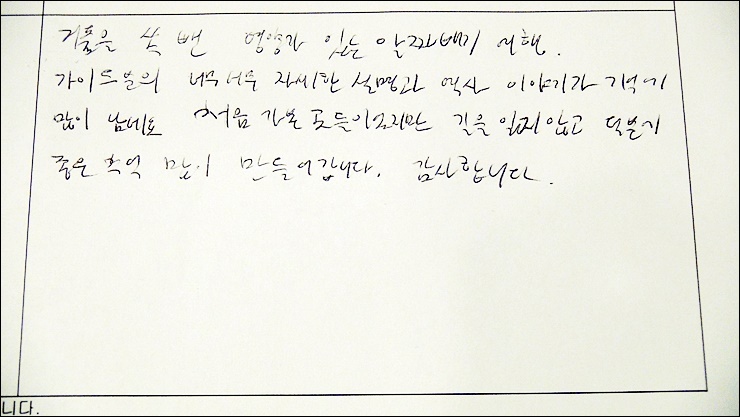 거품을 쏙 뺀 영양가 있는 알짜배기 여행.
가이드분의 너무너무 자세한 설명과 역사 이야기가 기억에
많이 남네요 처음 가본 곳들이었지만 길을 잃지않고 덕분에
좋은 추억 많이 만들어갑니다. 감사합니다.
니다.